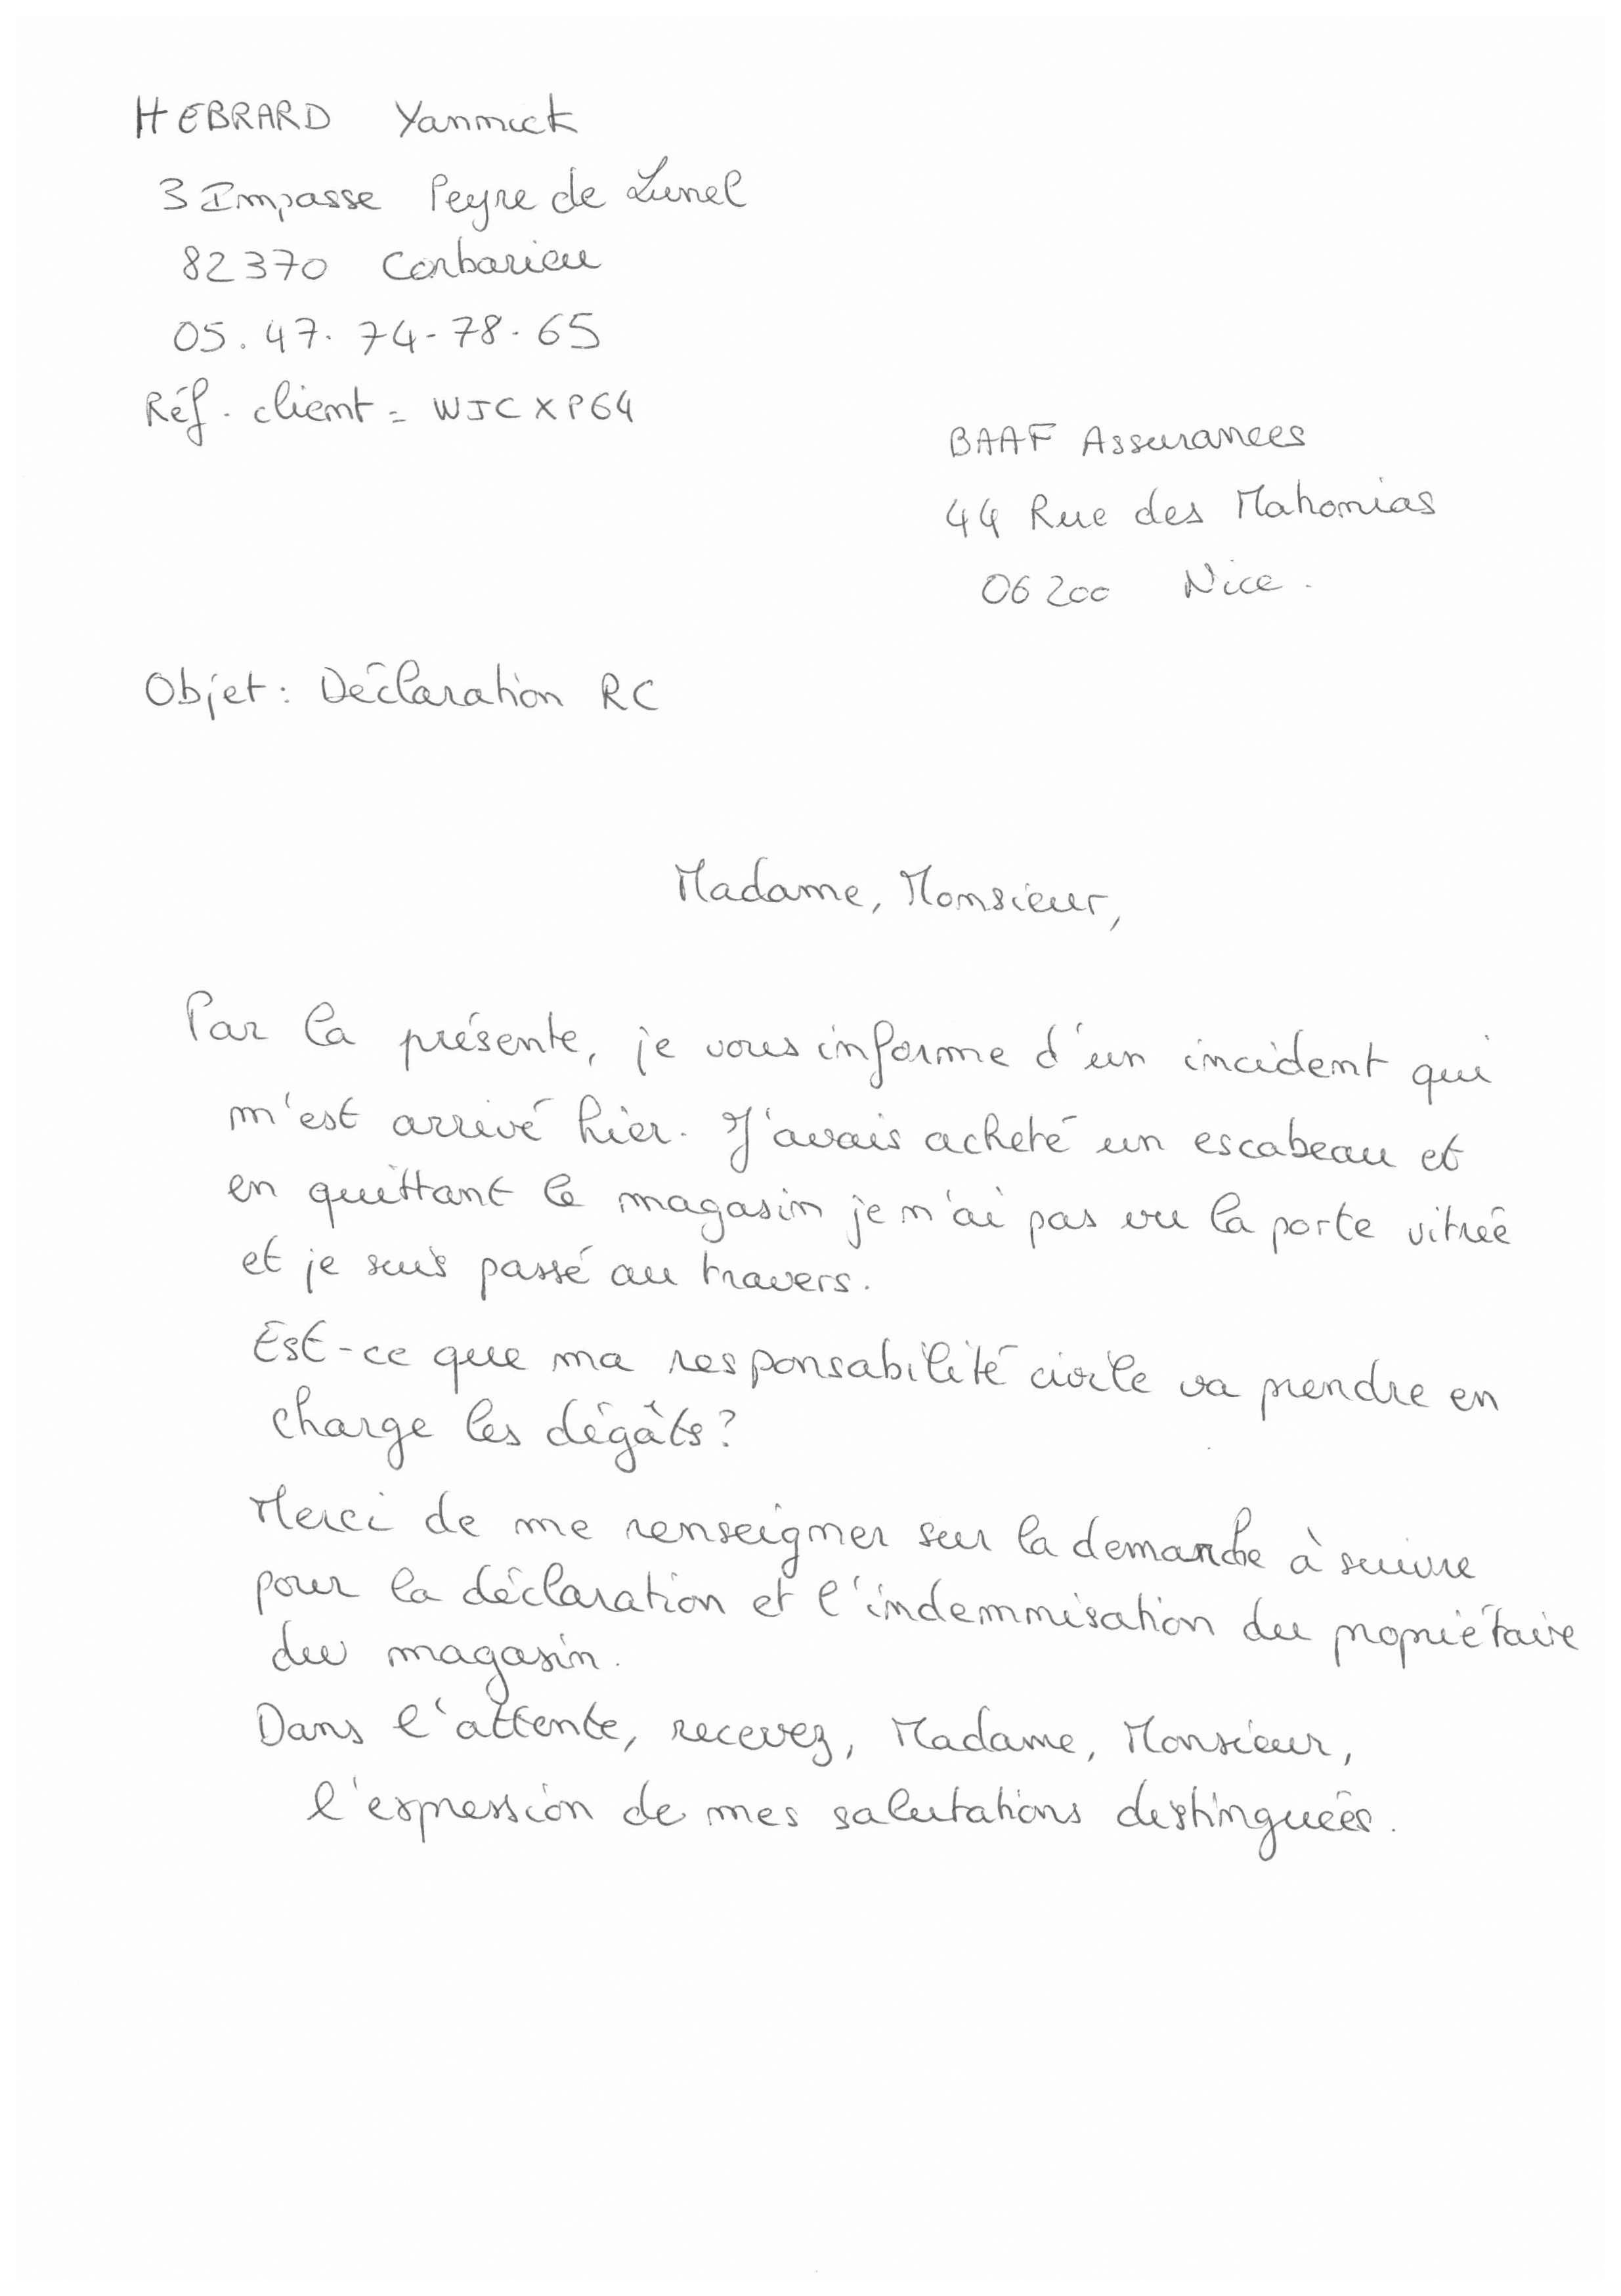 HEBRARD Yannick
3 Impasse Peyre de Lunel
82370 Corbarieu
05.47.74-78-65
Réf. client = WJCXP64
BAAF Assurances
44 Rue des Mahonias
06200 Nice.
Objet : Déclaration RC
Madame, Monsieur,
Par la présente, je vous informe d'un incident qui
m'est arrivé hier. J'avais acheté un escabeau et
en quittant le magasin je n'ai pas vu la porte vitrée
et je suis passé au travers.
Est-ce que ma responsabilité civile va prendre en
charge les dégâts ?
Merci de me renseigner sur la demarche à suivre
pour la déclaration et l'indemnisation du propriétaire
du magasin.
Dans l'attente, recevez, Madame, Monsieur,
l'expression de mes salutations distinguées.